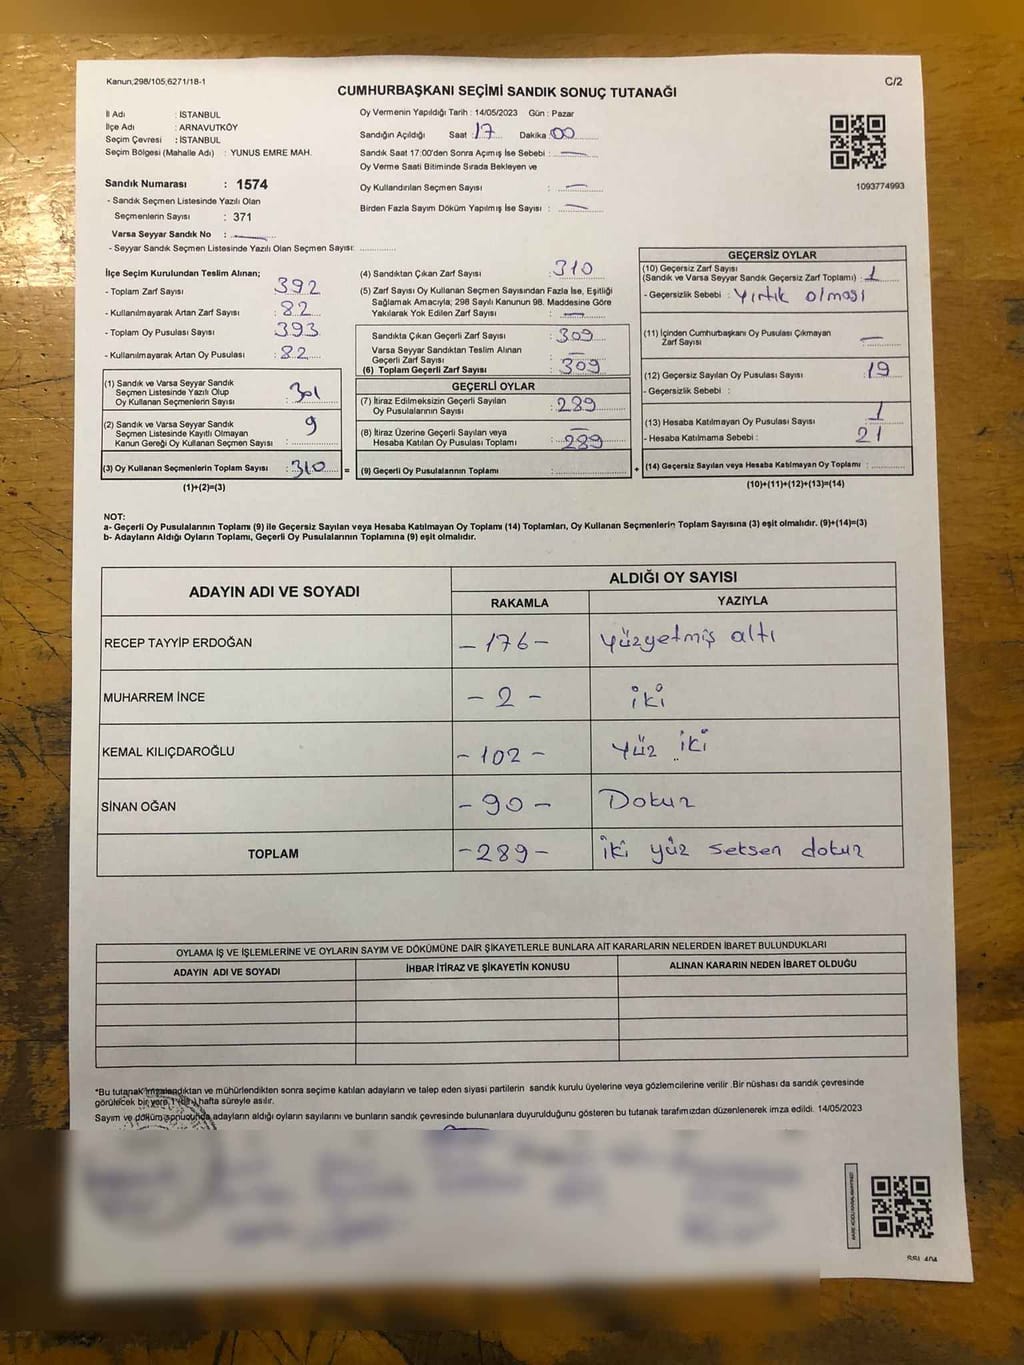 Kanun,298/105,6271/18-1
C/2
CUMHURBAŞKANI SEÇİMİ SANDIK SONUÇ TUTANAĞI
İl Adı : İSTANBUL
İlçe Adı : ARNAVUTKÖY
Seçim Çevresi : İSTANBUL
Seçim Bölgesi (Mahalle Adı) : YUNUS EMRE MAH.
Sandık Numarası : 1574
- Sandık Seçmen Listesinde Yazılı Olan
Seçmenlerin Sayısı : 371
Varsa Seyyar Sandık No : —
- Seyyar Sandık Seçmen Listesinde Yazılı Olan Seçmen Sayısı: ............
Oy Vermenin Yapıldığı Tarih : 14/05/2023 Gün : Pazar
Sandığın Açıldığı Saat : 17 Dakika : 00
Sandık Saat 17:00'den Sonra Açımış İse Sebebi : —
Oy Verme Saati Bitiminde Sırada Bekleyen ve
Oy Kullandırılan Seçmen Sayısı : —
Birden Fazla Sayım Döküm Yapılmış İse Sayısı : —
1093774993
İlçe Seçim Kurulundan Teslim Alınan;
- Toplam Zarf Sayısı : 392
- Kullanılmayarak Artan Zarf Sayısı : 82
- Toplam Oy Pusulası Sayısı : 393
- Kullanılmayarak Artan Oy Pusulası : 82
(1) Sandık ve Varsa Seyyar Sandık
Seçmen Listesinde Yazılı Olup
Oy Kullanan Seçmenlerin Sayısı : 301
(2) Sandık ve Varsa Seyyar Sandık
Seçmen Listesinde Kayıtlı Olmayan
Kanun Gereği Oy Kullanan Seçmen Sayısı : 9
(3) Oy Kullanan Seçmenlerin Toplam Sayısı : 310
(1)+(2)=(3)
=
(4) Sandıktan Çıkan Zarf Sayısı : 310
(5) Zarf Sayısı Oy Kullanan Seçmen Sayısından Fazla İse, Eşitliği
Sağlamak Amacıyla; 298 Sayılı Kanunun 98. Maddesine Göre
Yakılarak Yok Edilen Zarf Sayısı : —
Sandıkta Çıkan Geçerli Zarf Sayısı : 309
Varsa Seyyar Sandıktan Teslim Alınan
Geçerli Zarf Sayısı : —
(6) Toplam Geçerli Zarf Sayısı : 309
GEÇERLİ OYLAR
(7) İtiraz Edilmeksizin Geçerli Sayılan
Oy Pusulalarının Sayısı : 289
(8) İtiraz Üzerine Geçerli Sayılan veya
Hesaba Katılan Oy Pusulası Toplamı : —
289
(9) Geçerli Oy Pusulalarının Toplamı : ............
+
GEÇERSİZ OYLAR
(10) Geçersiz Zarf Sayısı
(Sandık ve Varsa Seyyar Sandık Geçersiz Zarf Toplamı) : 1
- Geçersizlik Sebebi : Yırtık olması
(11) İçinden Cumhurbaşkanı Oy Pusulası Çıkmayan
Zarf Sayısı : —
(12) Geçersiz Sayılan Oy Pusulası Sayısı : 19
- Geçersizlik Sebebi :
(13) Hesaba Katılmayan Oy Pusulası Sayısı : 1
- Hesaba Katılmama Sebebi : 21
(14) Geçersiz Sayılan veya Hesaba Katılmayan Oy Toplamı : ............
(10)+(11)+(12)+(13)=(14)
NOT:
a- Geçerli Oy Pusulalarının Toplamı (9) ile Geçersiz Sayılan veya Hesaba Katılmayan Oy Toplamı (14) Toplamları, Oy Kullanan Seçmenlerin Toplam Sayısına (3) eşit olmalıdır. (9)+(14)=(3)
b- Adayların Aldığı Oyların Toplamı, Geçerli Oy Pusulalarının Toplamına (9) eşit olmalıdır.
ADAYIN ADI VE SOYADI
ALDIĞI OY SAYISI
RAKAMLA YAZIYLA
RECEP TAYYİP ERDOĞAN - 176 - Yüzyetmiş altı
MUHARREM İNCE - 2 - iki
KEMAL KILIÇDAROĞLU - 102 - Yüz iki
SİNAN OĞAN - 90 - Dokuz
TOPLAM - 289 - iki yüz seksen dokuz
OYLAMA İŞ VE İŞLEMLERİNE VE OYLARIN SAYIM VE DÖKÜMÜNE DAİR ŞİKAYETLERLE BUNLARA AİT KARARLARIN NELERDEN İBARET BULUNDUKLARI
ADAYIN ADI VE SOYADI İHBAR İTİRAZ VE ŞİKAYETİN KONUSU ALINAN KARARIN NEDEN İBARET OLDUĞU
*Bu tutanak imzalandıktan ve mühürlendikten sonra seçime katılan adayların ve talep eden siyasi partilerin sandık kurulu üyelerine veya gözlemcilerine verilir .Bir nüshası da sandık çevresinde
görülecek bir yere 1 (bir) hafta süreyle asılır.
Sayım ve döküm sonucunda adayların aldığı oyların sayılarını ve bunların sandık çevresinde bulunanlara duyurulduğunu gösteren bu tutanak tarafımızdan düzenlenerek imza edildi. 14/05/2023